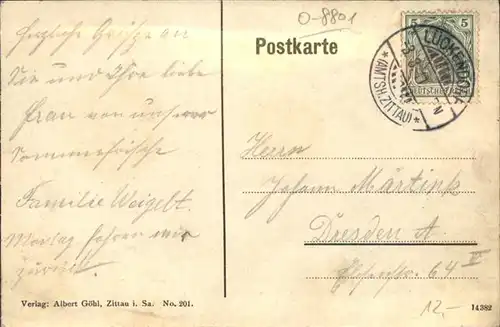 O-8801
Postkarte
5 5
LÜCKENDORF
* (AMTSH. ZITTAU) *
Herzliche Grüsse an
Sie und Ihre liebe
Frau von unserer
Sommerfrische
Familie Weigelt.
Montag fahren wir
zurück.
Herrn
Johann Märtink
Dresden A.
64 II
Verlag: Albert Göhl, Zittau i. Sa. No. 201.
14382
12.-